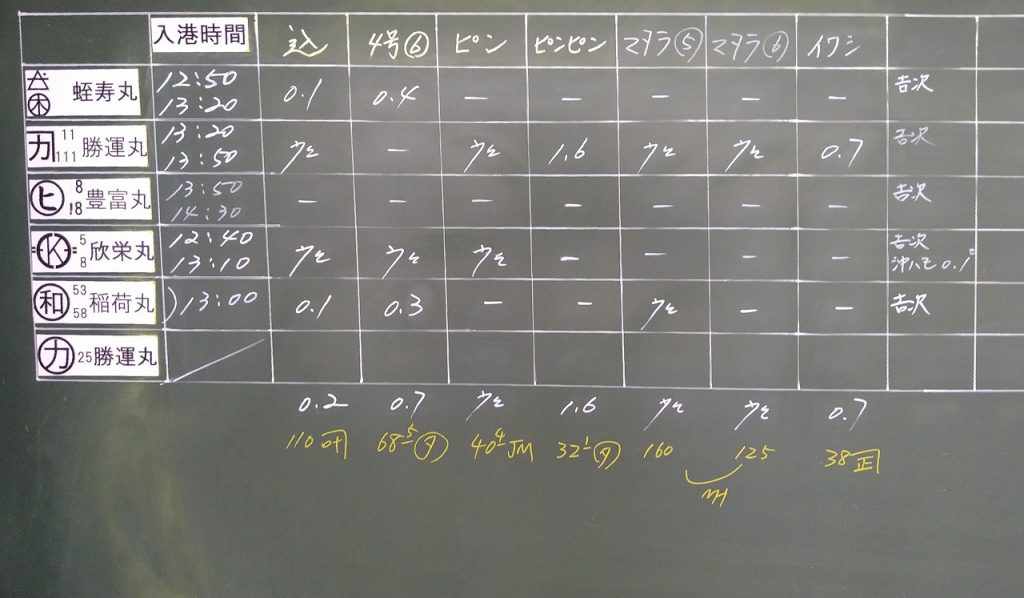 入港時間 込 4号⑥ ピン ピンピン マダラ⑤ マダラ⑥ イワシ
蛭寿丸 12:50 13:20 0.1 0.4 — — — — — 吉次
カ 11 111 勝運丸 13:20 13:50 — 1.6 0.7 吉次
ヒ 8 18 豊富丸 13:50 14:30 — — — — — — — 吉次
K 5 8 欣栄丸 12:40 13:10 — — — — 吉次 沖ハモ 0.1
和 53 58 稲荷丸 13:00 0.1 0.3 — — — — 吉次
カ 25 勝運丸
0.2 0.7 1.6 0.7
110 叶 68 5 タ 40 4 JM 32 1 タ 160 125 38 正